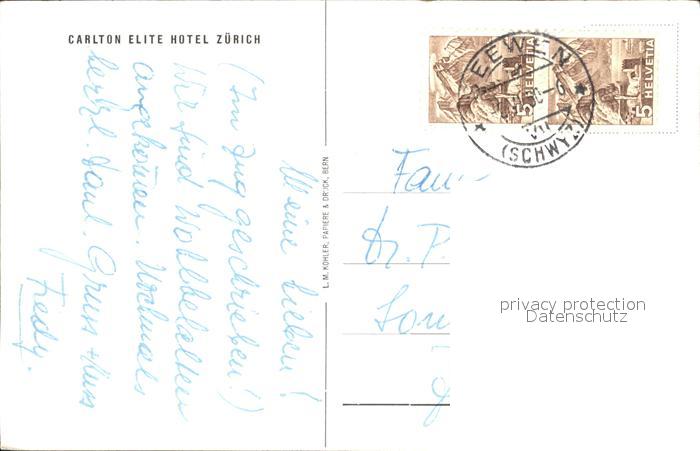 CARLTON ELITE HOTEL ZÜRICH
Meine Lieben!
(Im Zug geschrieben!)
Wir sind Wohlbehalten
angekommen. Nochmals
herzl. Dank. Gruss + Kuss
Fredy.
L. M. KOHLER, PAPIERE & DRUCK, BERN
HELVETIA
5
HELVETIA
5
SEEWEN
(SCHWYZ)
Fam
Dr. P.
privacy protection
Datenschutz